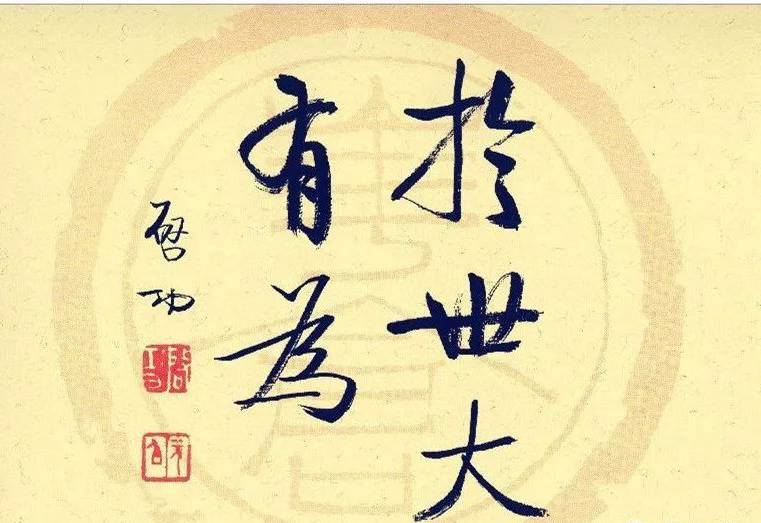 於世大
有為
啓功